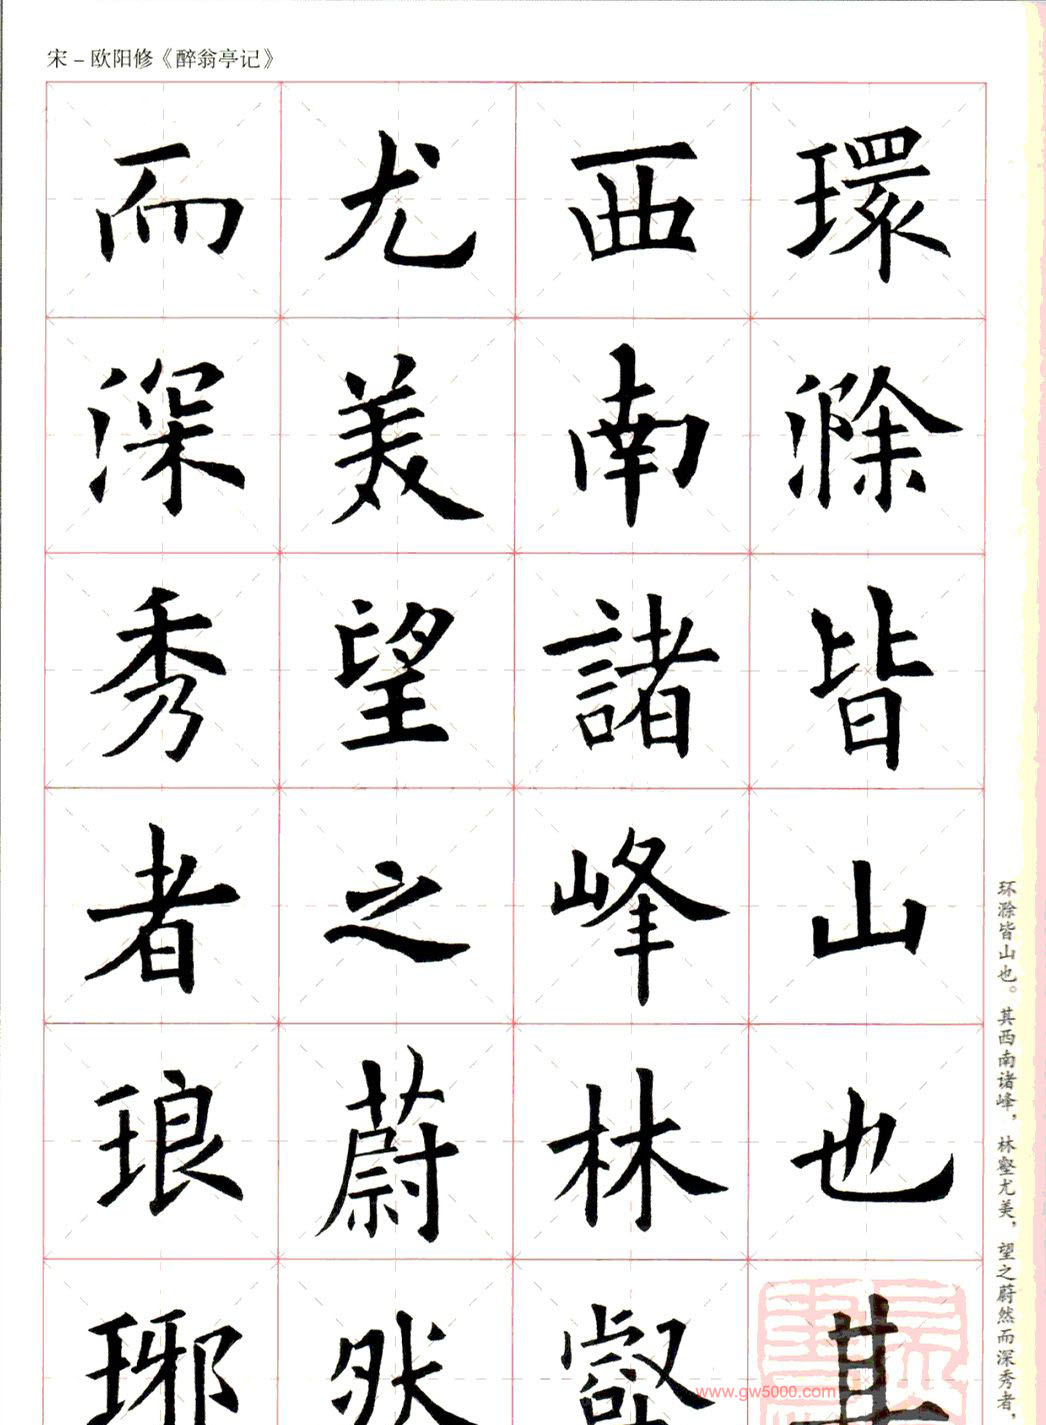 宋－欧阳修《醉翁亭记》
環滁皆山也其
西南諸峰林壑
尤美望之蔚然
而深秀者琅琊
环滁皆山也。其西南诸峰，林壑尤美，望之蔚然而深秀者，
www.gw5000.com